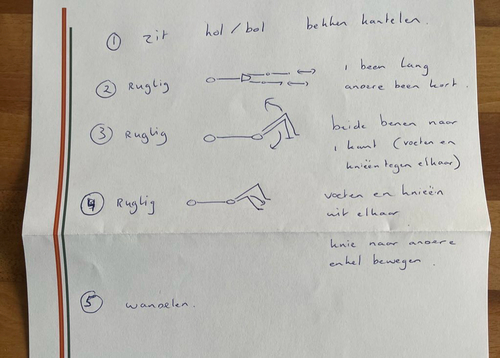 1 zit hol / bol bekken kantelen.
2 Ruglig 1 been lang
andere been kort.
3 Ruglig beide benen naar
1 kant (voeten en
knieën tegen elkaar)
4 Ruglig voeten en knieën
uit elkaar
knie naar andere
enkel bewegen.
5 wandelen.